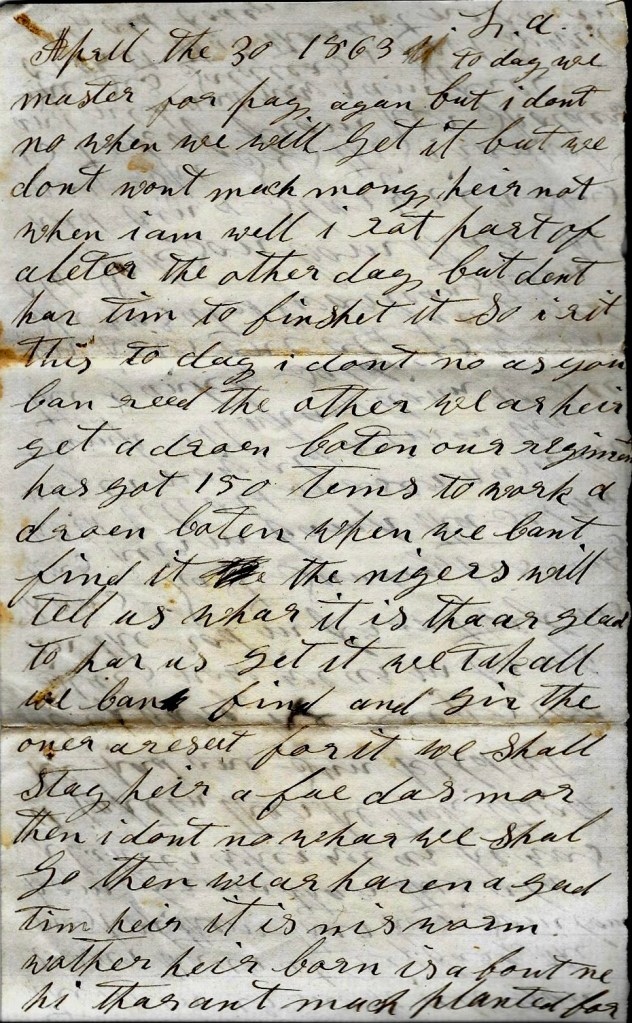 La.
April the 30 1863 to day we
master for pay agan but i dont
no when we will get it but we
dont wont much mony heir not
when i am well i rot part of
a leter the other day but dent
hav tim to finshet it so i rit
this to day i dont no as you
can reed the other we ar heir
get a droen coten our regiment
has got 150 tems to work a
droen coten when we cant
find it the nigers will
tell us whar it is tha ar glad
to hav us get it we tak all
we can find and giv the
oner a reseit for it we shall
stay heir a fue das mor
then i dont no whar we shal
go then we ar haven a gad
tim heir it is nis worm
wather heir corn is a bout ne
hi thar ant much planted for